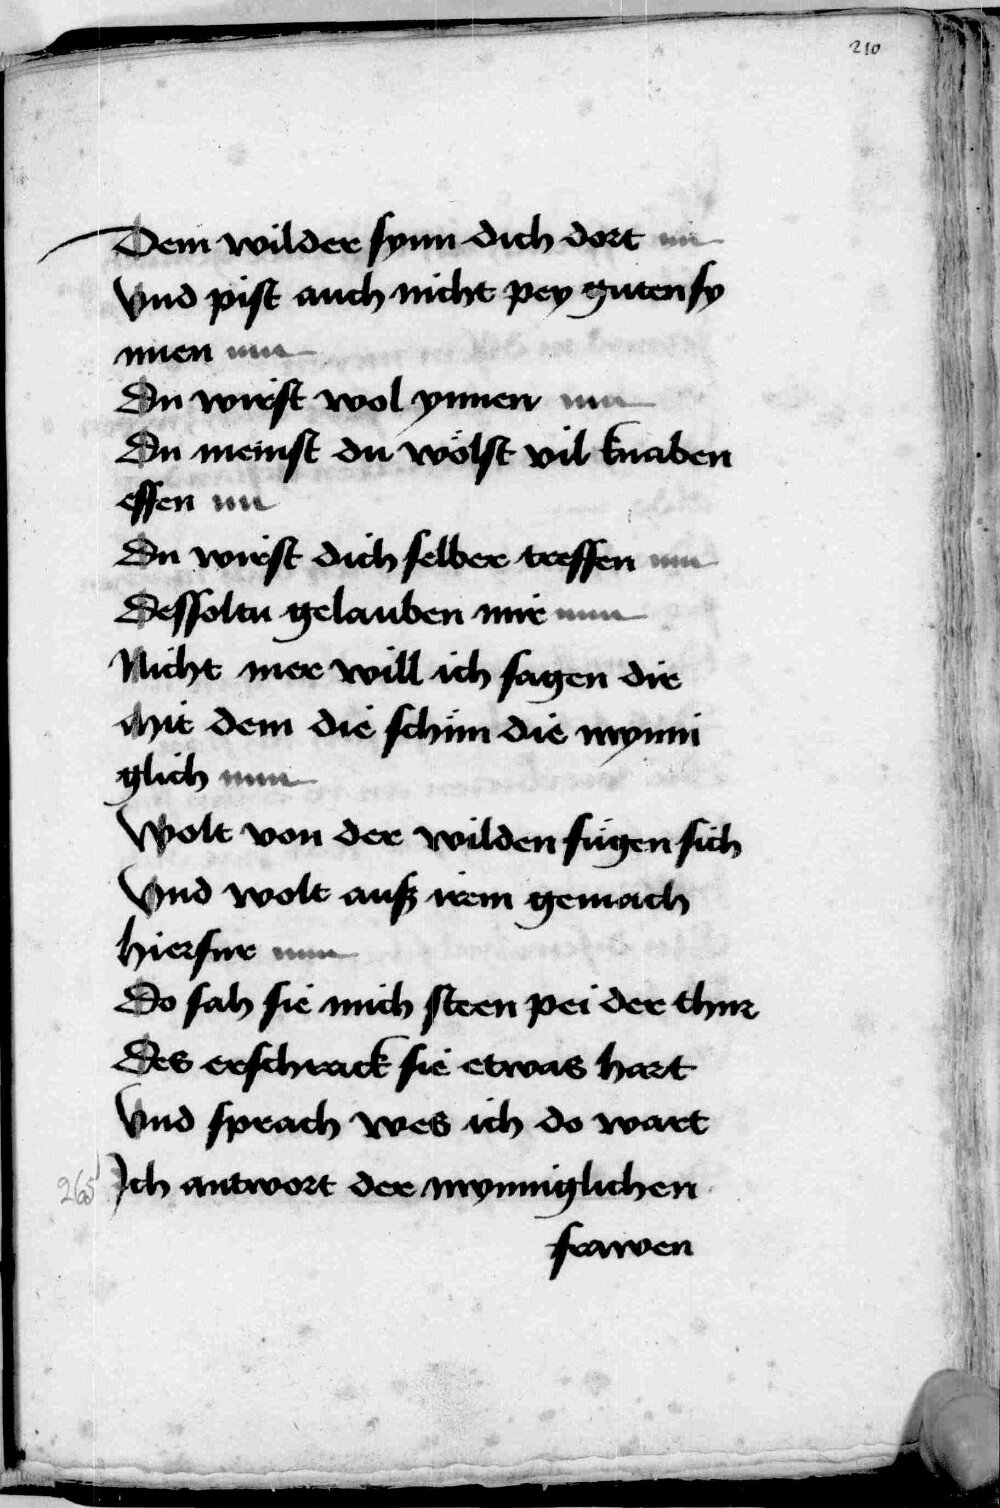 210
Dein wilder synn dich dort
Vnd pist auch nicht pey guten sy
nnen
Du wirst wol ynnen
Du meinst du wölst vil knaben
essen
Du wirst dich selber treffen
Dessoltu gelauben mir
Nicht mer will ich sagen dir
Mit dem die schün die mynni
glich
Wolt von der wilden fügen sich
Vnd wolt auß irem gemach
hierfur
Do sah sie mich steen pei der thur
Des erschrack sie etwas hart
Vnd sprach wes ich do wart
265 Ich antwort der mynniglichen
frawen